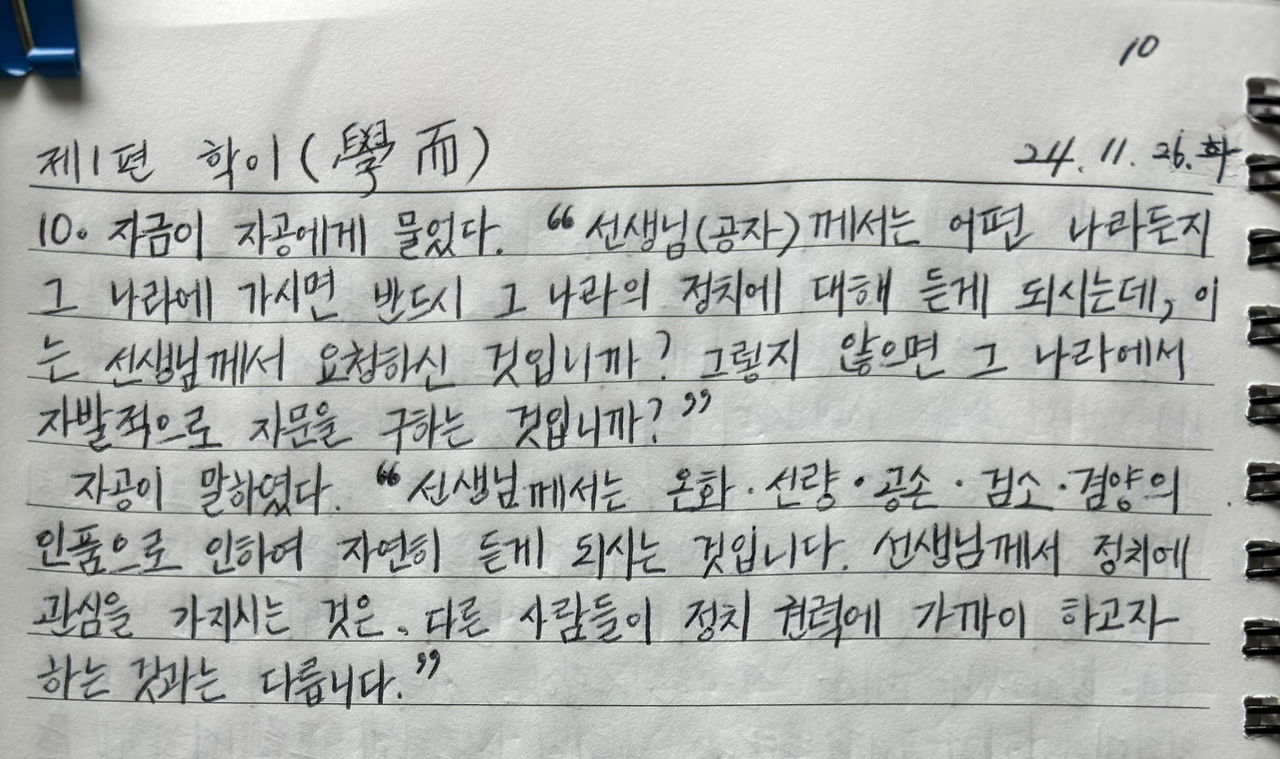 10
제1편 학이(學而) 24. 11. 26. 화
10. 자금이 자공에게 물었다. “선생님(공자)께서는 어떤 나라든지
그 나라에 가시면 반드시 그 나라의 정치에 대해 듣게 되시는데, 이
는 선생님께서 요청하신 것입니까? 그렇지 않으면 그 나라에서
자발적으로 자문을 구하는 것입니까?”
자공이 말하였다. “선생님께서는 온화·선량·공손·검소·겸양의
인품으로 인하여 자연히 듣게 되시는 것입니다. 선생님께서 정치에
관심을 가지시는 것은, 다른 사람들이 정치 권력에 가까이 하고자
하는 것과는 다릅니다.”